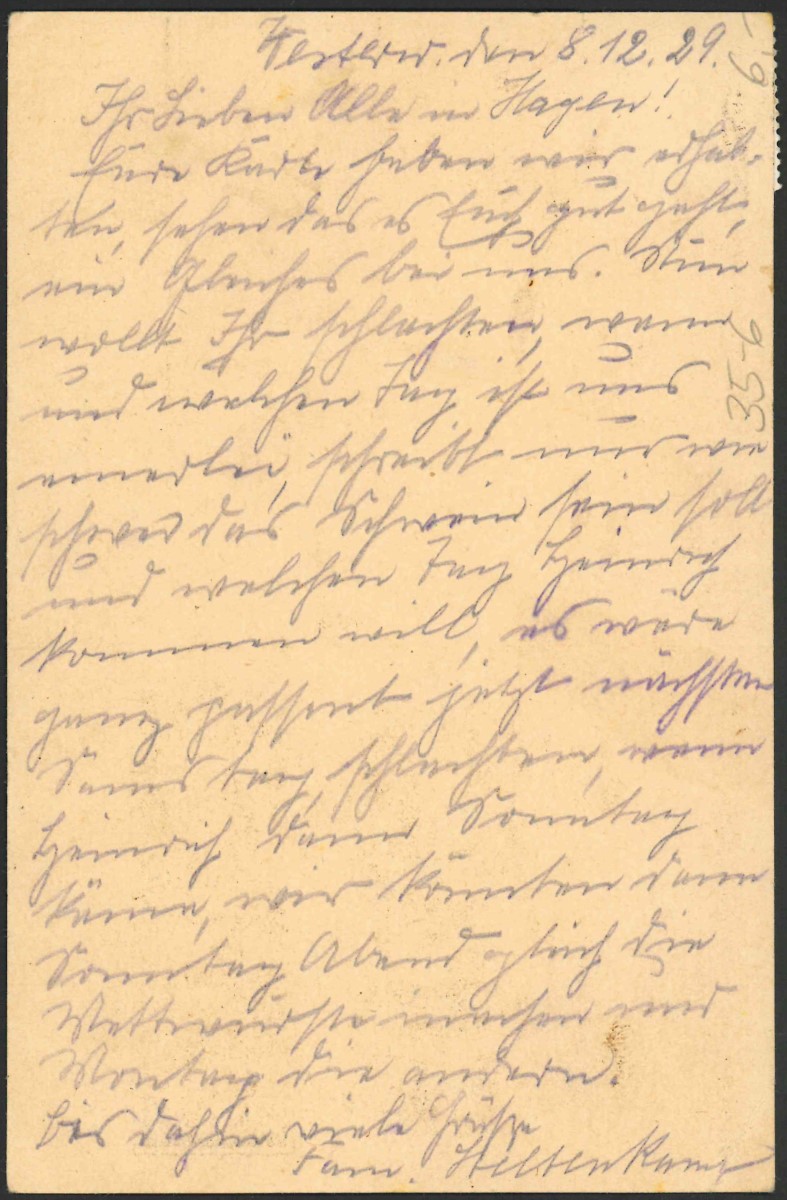 den 8.12.29.
Ihr Lieben Alle in Hagen!
Eure Karte haben wir erhal-
ten, sehen das es Euch gut geht,
ein Gleiches bei uns. Nun
wollt Ihr schlachten, wann
und welchen Tag ist uns
einerlei, schreibt nur wie
schwer das Schwein sein soll
und welchen Tag Heinrich
kommen will, es wäre
ganz passent jetzt nächsten
Samstag, schlachten, wenn
Heinrich dann Sonntag
käme, wir könnten dann
Sonntag Abend gleich die
Mettwürste machen und
Montag die andern.
bis dahin viele Grüße
Fam.
6.-
35-6